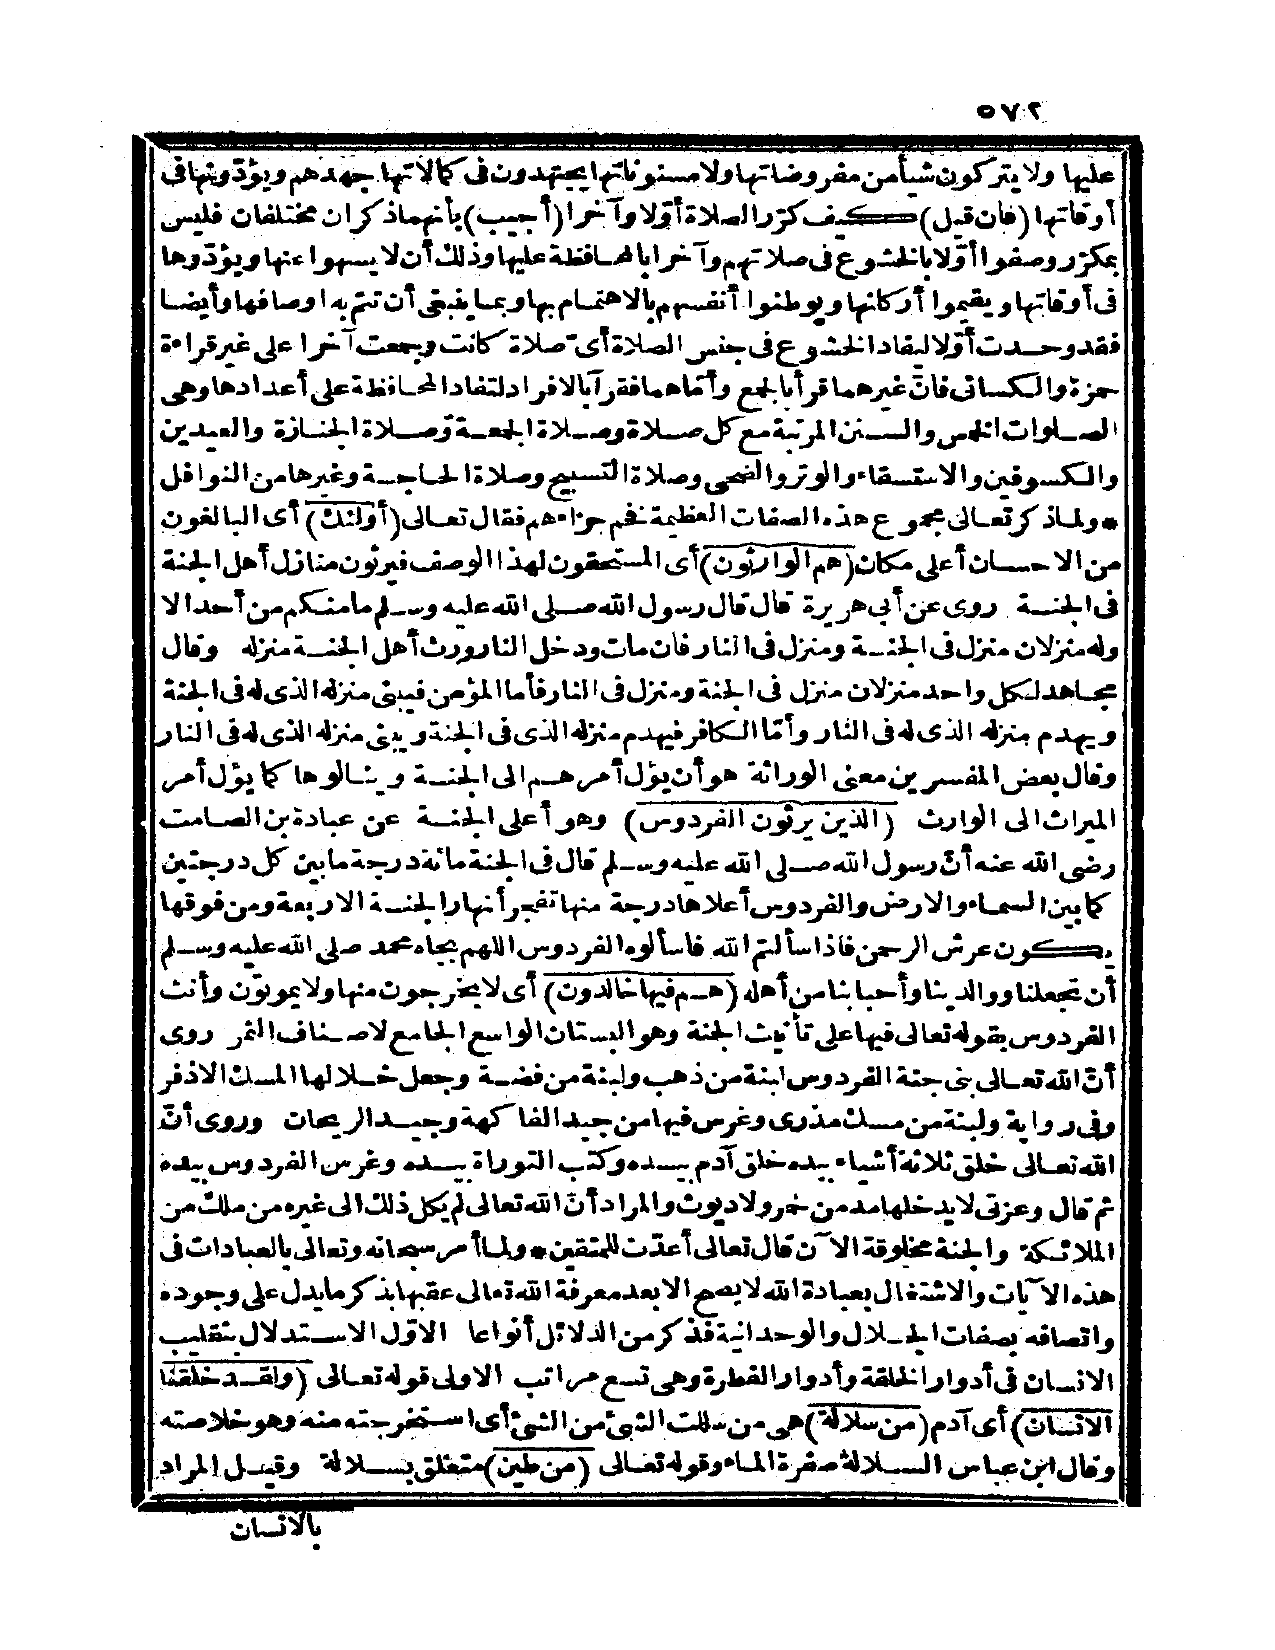 ٥٧٢
عليها ولا يتركون شيأ من مفروضاتها ولا مسنوناتها يجتهدون فى كمالاتها جهدهم ويؤدونها فى
أوقاتها (فان قيل) كيف كرّر الصلاة أوّلا وآخرا (أجيب) بأنهما ذكران مختلفان فليس
بمكرّر وصفوا أوّلا بالخشوع فى صلاتهم وآخرا بالمحافظة عليها وذلك أن لا يسهوا عنها ويؤدّوها
فى أوقاتها ويقيموا أركانها ويوطنوا أنفسهم بالاهتمام بها وبما ينبغى أن تتم به اوصافها وأيضا
فقد وحدت أوّلا ليفاد الخشوع فى جنس الصلاة أىّ صلاة كانت وجمعت آخرا على غير قراءة
حمزة والكسائى فانّ غيرهما قرأ بالجمع وأمّا هما فقرآ بالافراد لتفاد المحافظة على أعدادها وهى
الصلوات الخمس والسنن المرتبة مع كل صلاة وصلاة الجمعة وصلاة الجنازة والعيدين
والكسوفين والاستسقاء والوتر والضحى وصلاة التسبيح وصلاة الحاجة وغيرها من النوافل
* ولما ذكر تعالى مجموع هذه الصفات العظيمة فخم جزاءهم فقال تعالى (أولئك) أى البالغون
من الاحسان أعلى مكان (هم الوارثون) أى المستحقون لهذا الوصف فيرثون منازل أهل الجنة
فى الجنة روى عن أبى هريرة قال قال رسول الله صلى الله عليه وسلم ما منكم من أحد الا
وله منزلان منزل فى الجنة ومنزل فى النار فان مات ودخل النار ورث أهل الجنة منزله وقال
مجاهد لكل واحد منزلان منزل فى الجنة ومنزل فى النار فأما المؤمن فيبنى منزله الذى له فى الجنة
ويهدم منزله الذى له فى النار وأمّا الكافر فيهدم منزله الذى فى الجنة ويبنى منزله الذى له فى النار
وقال بعض المفسرين معنى الوراثة هو أن يؤل أمرهم الى الجنة وينالوها كما يؤل أمر
الميراث الى الوارث (الذين يرثون الفردوس) وهو أعلى الجنة عن عبادة بن الصامت
رضى الله عنه أنّ رسول الله صلى الله عليه وسلم قال فى الجنة مائة درجة ما بين كل درجتين
كما بين السماء والارض والفردوس أعلاها درجة منها تفجر أنهار الجنة الاربعة ومن فوقها
يكون عرش الرحمن فاذا سألتم الله فاسألوه الفردوس اللهم بجاه محمد صلى الله عليه وسلم
أن تجعلنا ووالدينا وأحبابنا من أهله (هم فيها خالدون) أى لا يخرجون منها ولا يموتون وأنث
الفردوس بقوله تعالى فيها على تأنيث الجنة وهو البستان الواسع الجامع لاصناف الثمر روى
أنّ الله تعالى بنى جنة الفردوس لبنة من ذهب ولبنة من فضة وجعل خلالها المسك الاذفر
وفى رواية ولبنة من مسك مذرى وغرس فيها من جيد الفاكهة وجيد الريحان وروى أنّ
الله تعالى خلق ثلاثة أشياء بيده خلق آدم بيده وكتب التوراة بيده وغرس الفردوس بيده
ثم قال وعزتى لا يدخلها مدمن خمر ولا ديوث والمراد أنّ الله تعالى لم يكل ذلك الى غيره من ملك من
الملائكة والجنة مخلوقة الآن قال تعالى أعدّت للمتقين * ولما أمر سبحانه وتعالى بالعبادات فى
هذه الآيات والاشتغال بعبادة الله لا يصح الا بعد معرفة الله تعالى عقبها بذكر ما يدل على وجوده
واتصافه بصفات الجلال والوحدانية فذكر من الدلائل أنواعا الاوّل الاستدلال بتقليب
الانسان فى أدوار الخلقة وأدوار الفطرة وهى تسع مراتب الاولى قوله تعالى (ولقد خلقنا
الانسان) أى آدم (من سلالة) هى من سللت الشئ من الشئ أى استخرجته منه وهو خلاصته
وقال ابن عباس السلالة صفوة الماء وقوله تعالى (من طين) متعلق بسلالة وقيل المراد
بالانسان